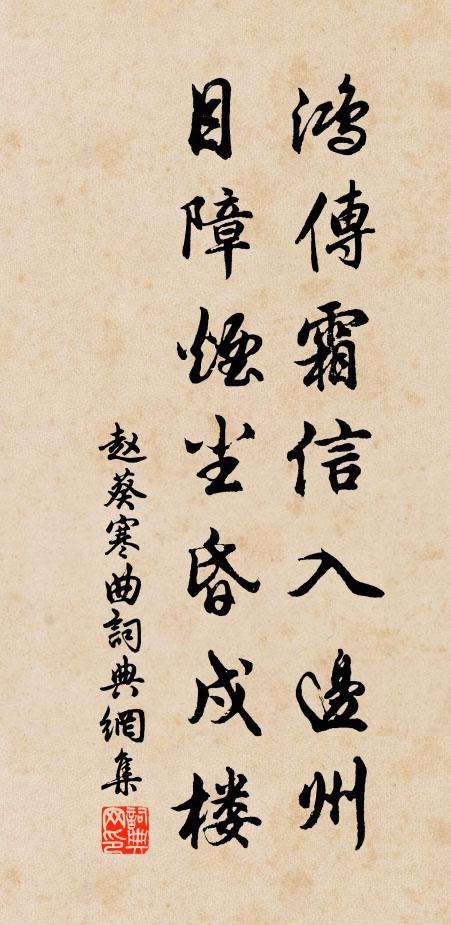 鴻傳霜信入邊州
目障煙尘昏戍楼
赵葵寒曲詞典網集
詞典网印